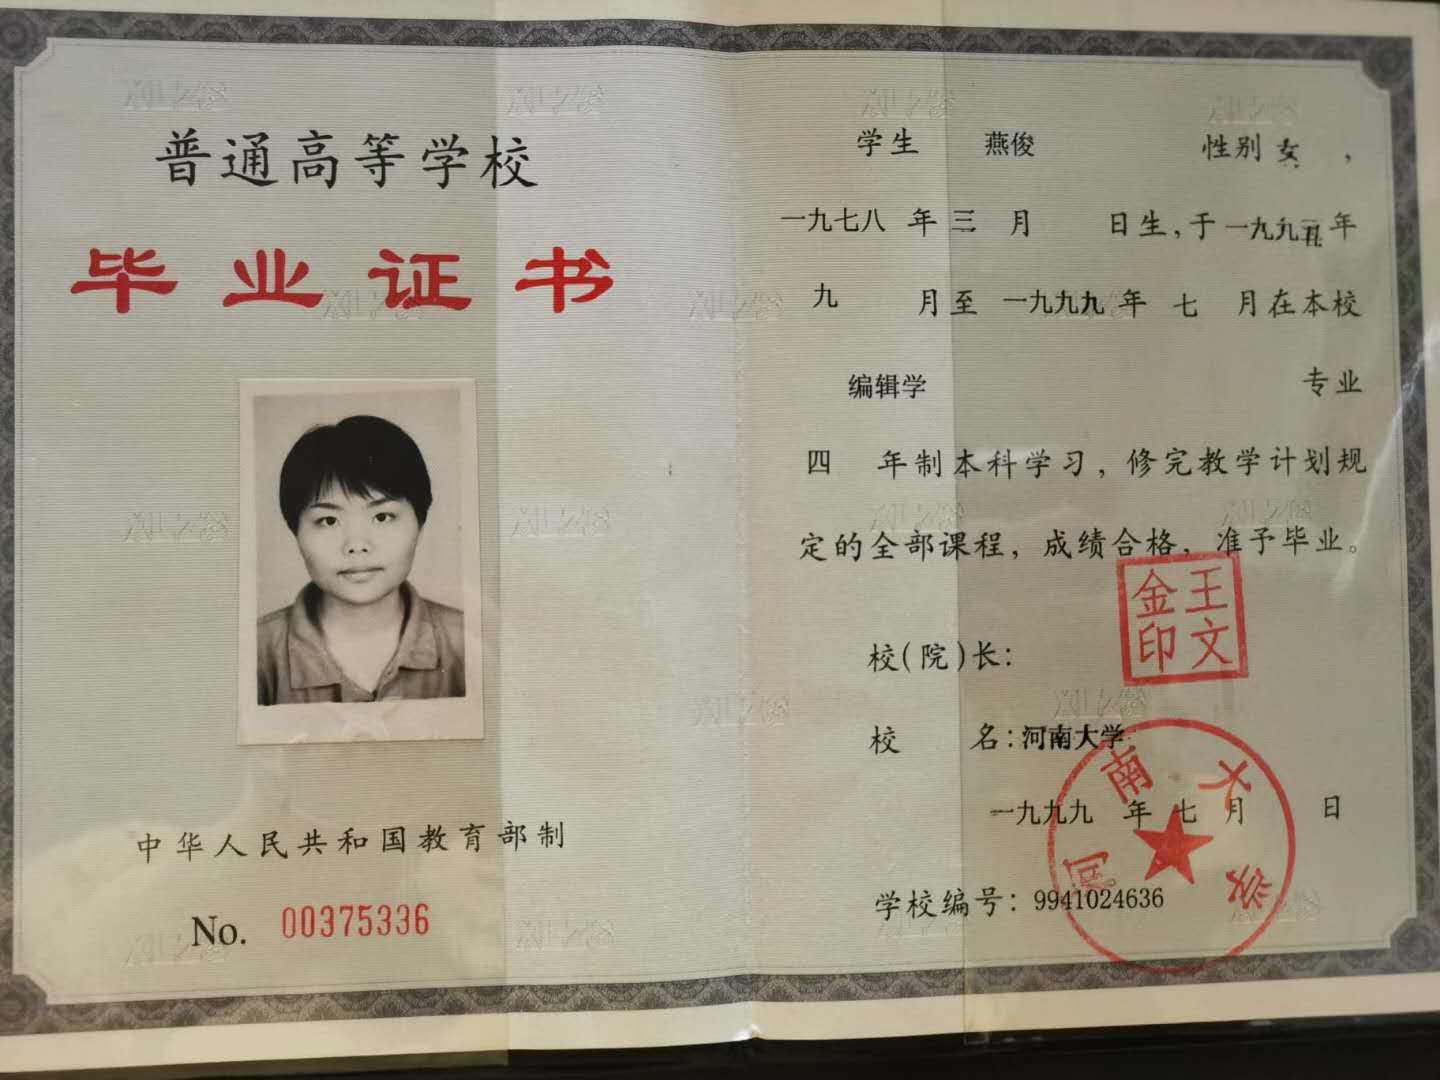 普通高等学校
毕业证书
中华人民共和国教育部制
No. 00375336
学生 燕俊 性别 女,
一九七八 年 三 月 日生,于 一九九五 年
九 月至 一九九九 年 七 月在本校
编辑学 专业
四 年制本科学习,修完教学计划规
定的全部课程,成绩合格,准予毕业。
校(院)长:
王文金印
校 名:河南大学
一九九九 年 七 月 日
学校编号:9941024636
河南大学